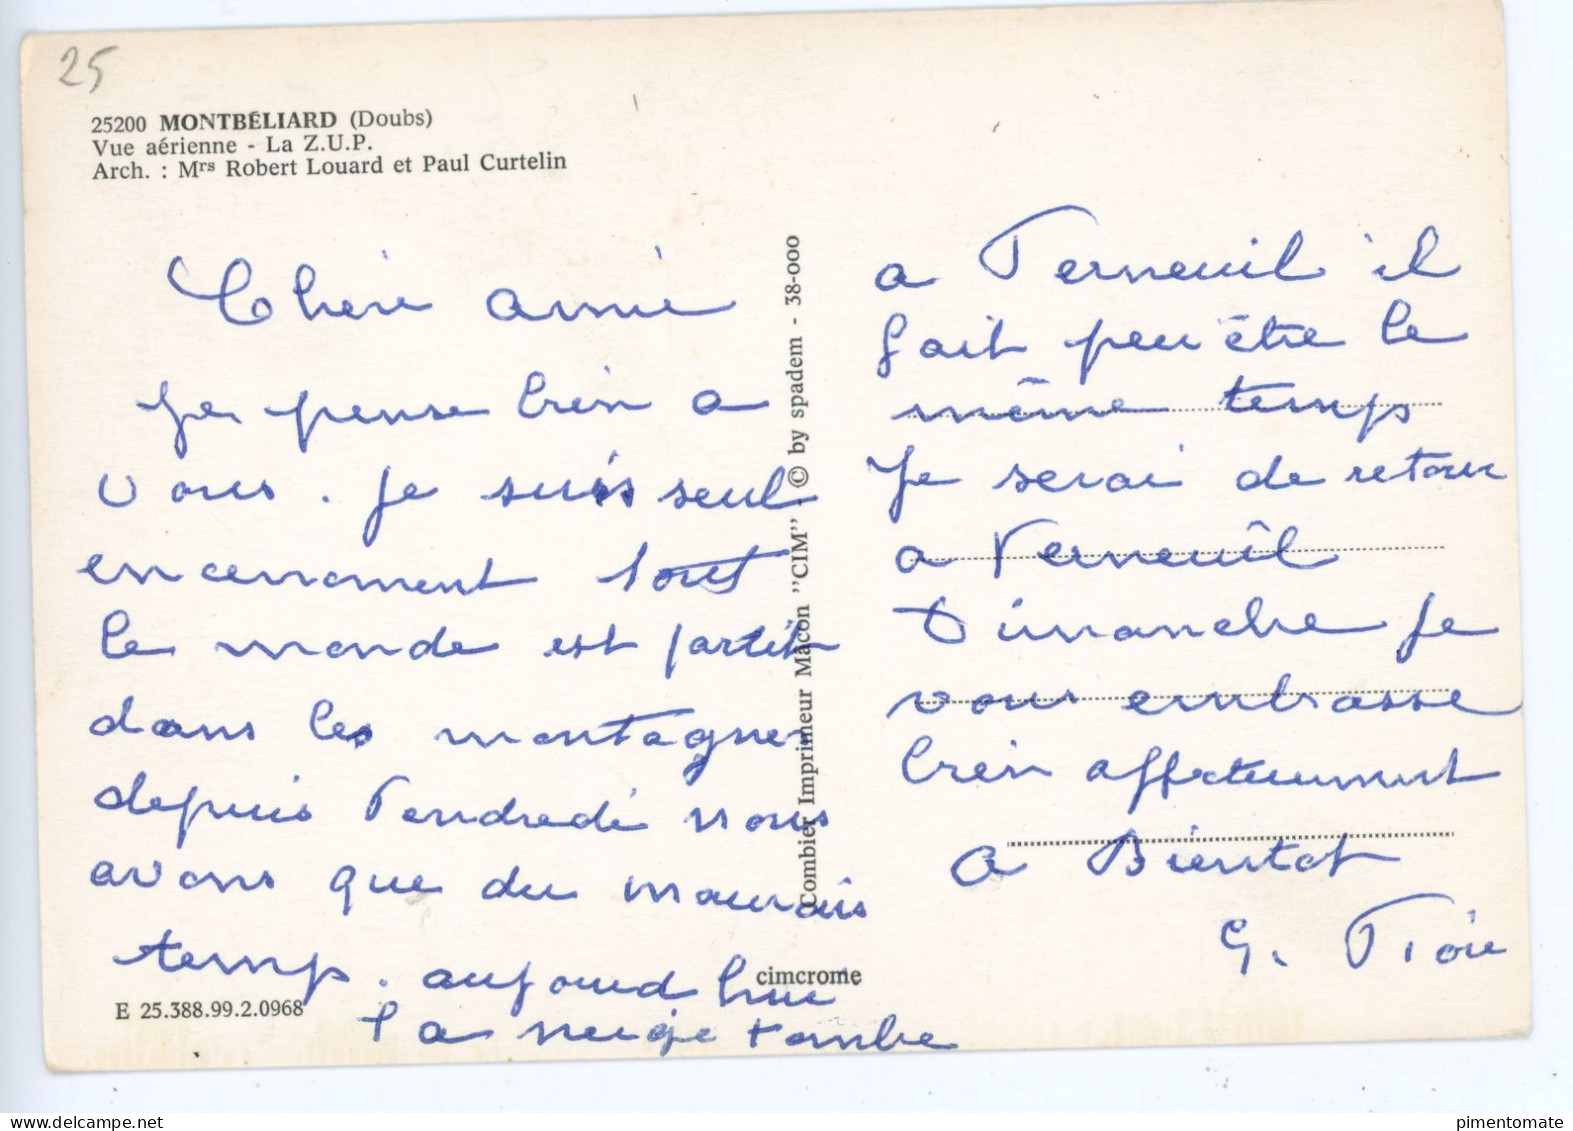 25
25200 MONTBÉLIARD (Doubs)
Vue aérienne - La Z.U.P.
Arch. : Mrs Robert Louard et Paul Curtelin
Chère amie
Je pense bien a
vous. je suis seul
en ce moment tout
le monde est partit
dans les montagnes
depuis Vendredi nous
avons que du mauvais
temps. aujourd hui
la neige tombe
E 25.388.99.2.0968
cimcrome
Combier Imprimeur Mâcon "CIM" - © by spadem - 38-000
a Verneuil il
fait peu être le
même temps
Je serai de retour
a Verneuil
Dimanche je
vous embrasse
bien affectueusement
a Bientot
G.
pimentomate